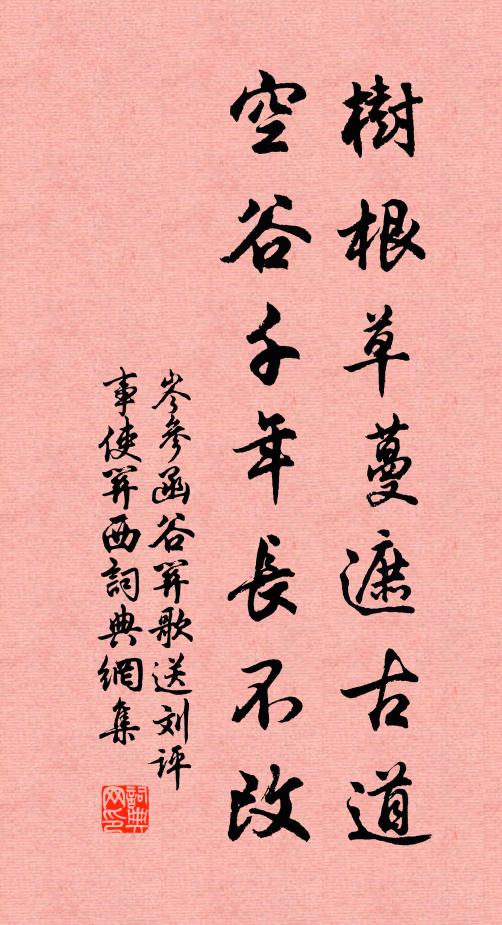 樹根草蔓遮古道
空谷千年長不改
岑參函谷關歌送刘评
事使關西詞典網集
詞典网印